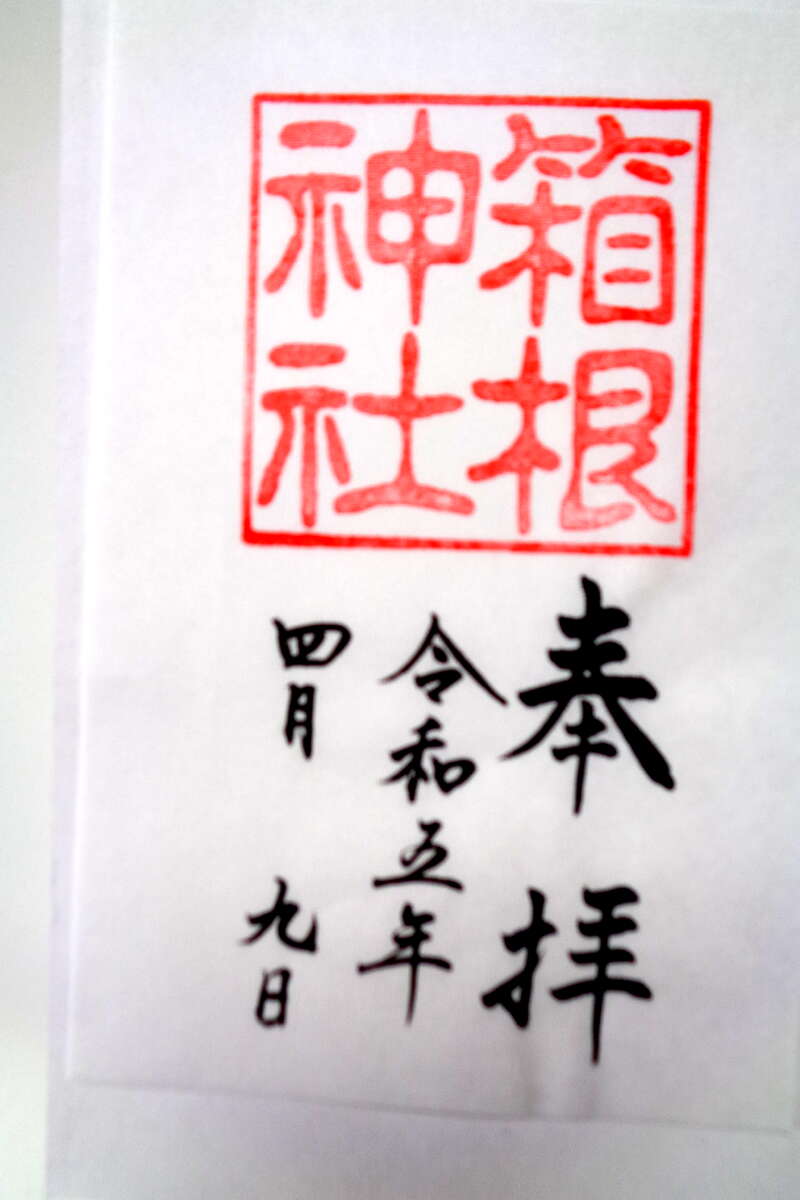 箱根
神社
奉拝
令和五年
四月九日